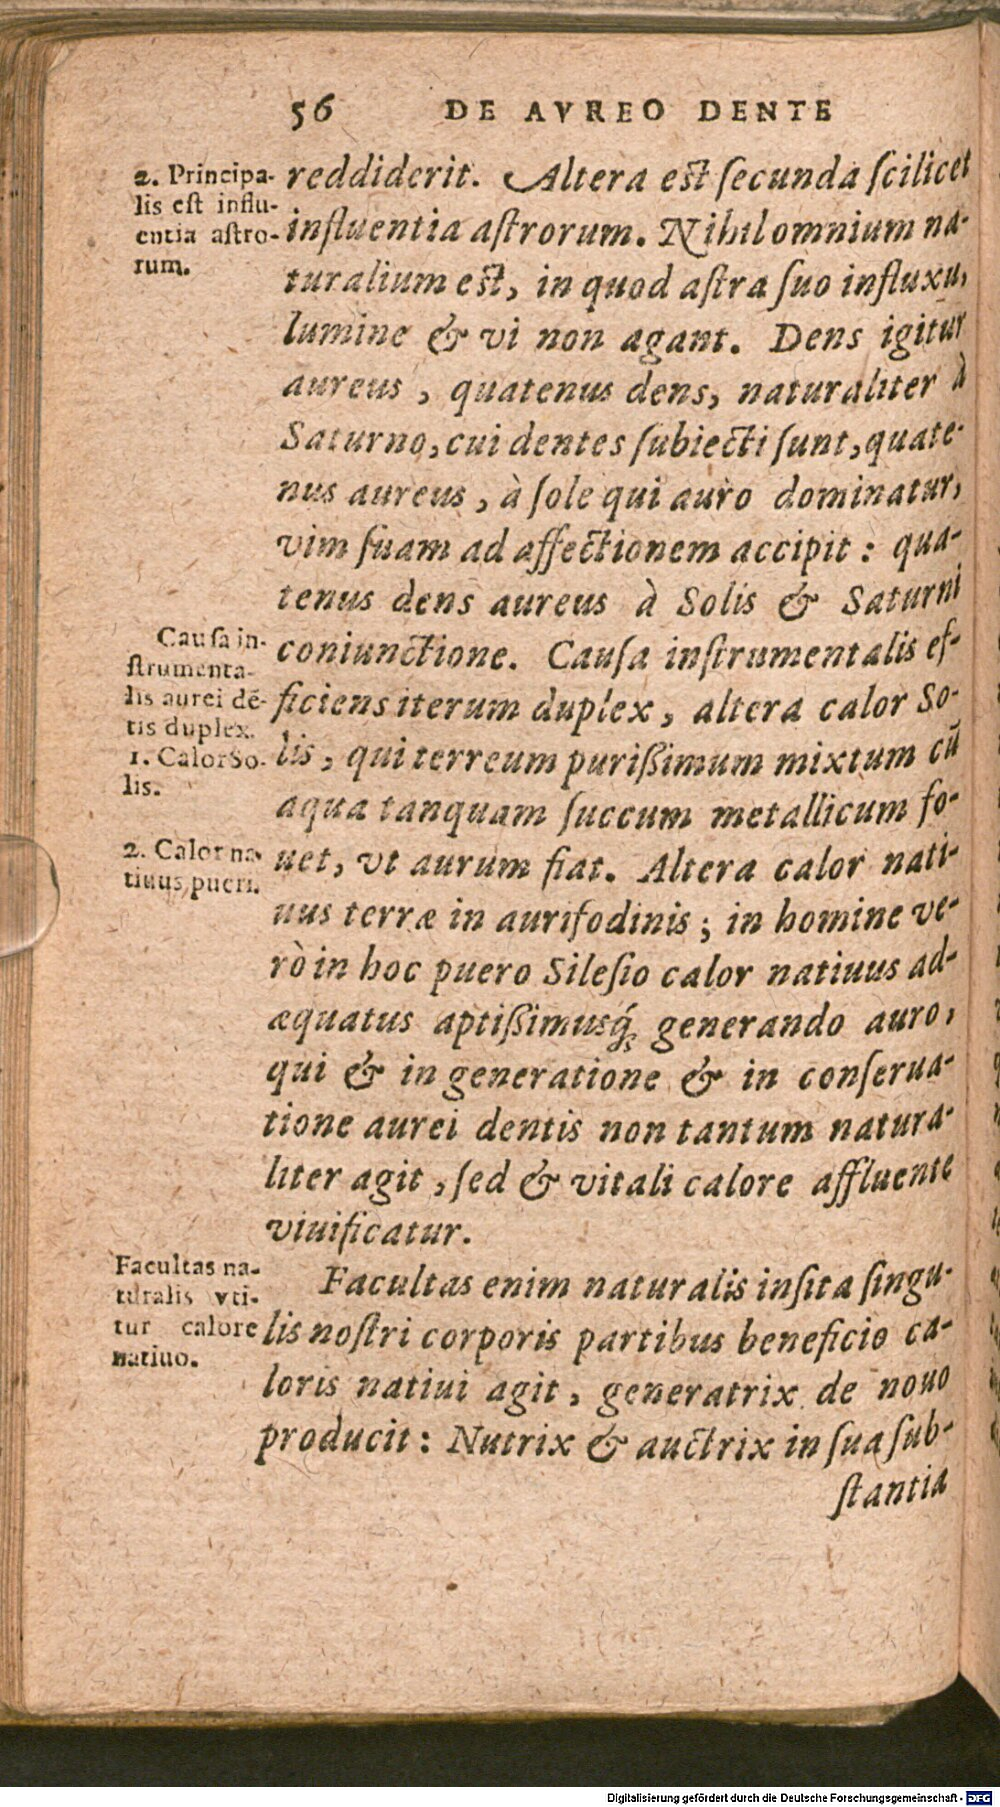 56 DE AVREO DENTE
2. Principa-
lis est influ-
entia astro-
rum.
reddiderit. Altera est ſecunda ſcilicet
influentia aſtrorum. Nihil omnium na-
turalium est, in quod aſtra ſuo influxu,
lumine & vi non agant. Dens igitur
aureus, quatenus dens, naturaliter à
Saturno, cui dentes ſubiecti ſunt, quate-
nus aureus, à ſole qui auro dominatur,
vim ſuam ad affectionem accipit: qua-
tenus dens aureus à Solis & Saturni
Cauſa in-
ſtrumenta-
lis aurei dē-
tis duplex.
1. Calor So-
lis.
coniunctione. Cauſa inſtrumentalis ef-
ficiens iterum duplex, altera calor So-
lis, qui terreum purißimum mixtum cū
aqua tanquam ſuccum metallicum fo-
2. Calor na-
tiuus pueri.
uet, vt aurum fiat. Altera calor nati-
uus terræ in aurifodinis; in homine ve-
rò in hoc puero Sileſio calor natiuus ad-
æquatus aptißimusq́; generando auro,
qui & in generatione & in conſerua-
tione aurei dentis non tantum natura-
liter agit, ſed & vitali calore affluente
viuificatur.
Facultas na-
turalis vti-
tur calore
natiuo.
Facultas enim naturalis inſita ſingu-
lis noſtri corporis partibus beneficio ca-
loris natiui agit, generatrix de nouo
producit: Nutrix & auctrix in ſua ſub-
ſtantia
Digitalisierung gefördert durch die Deutsche Forschungsgemeinschaft - DFG